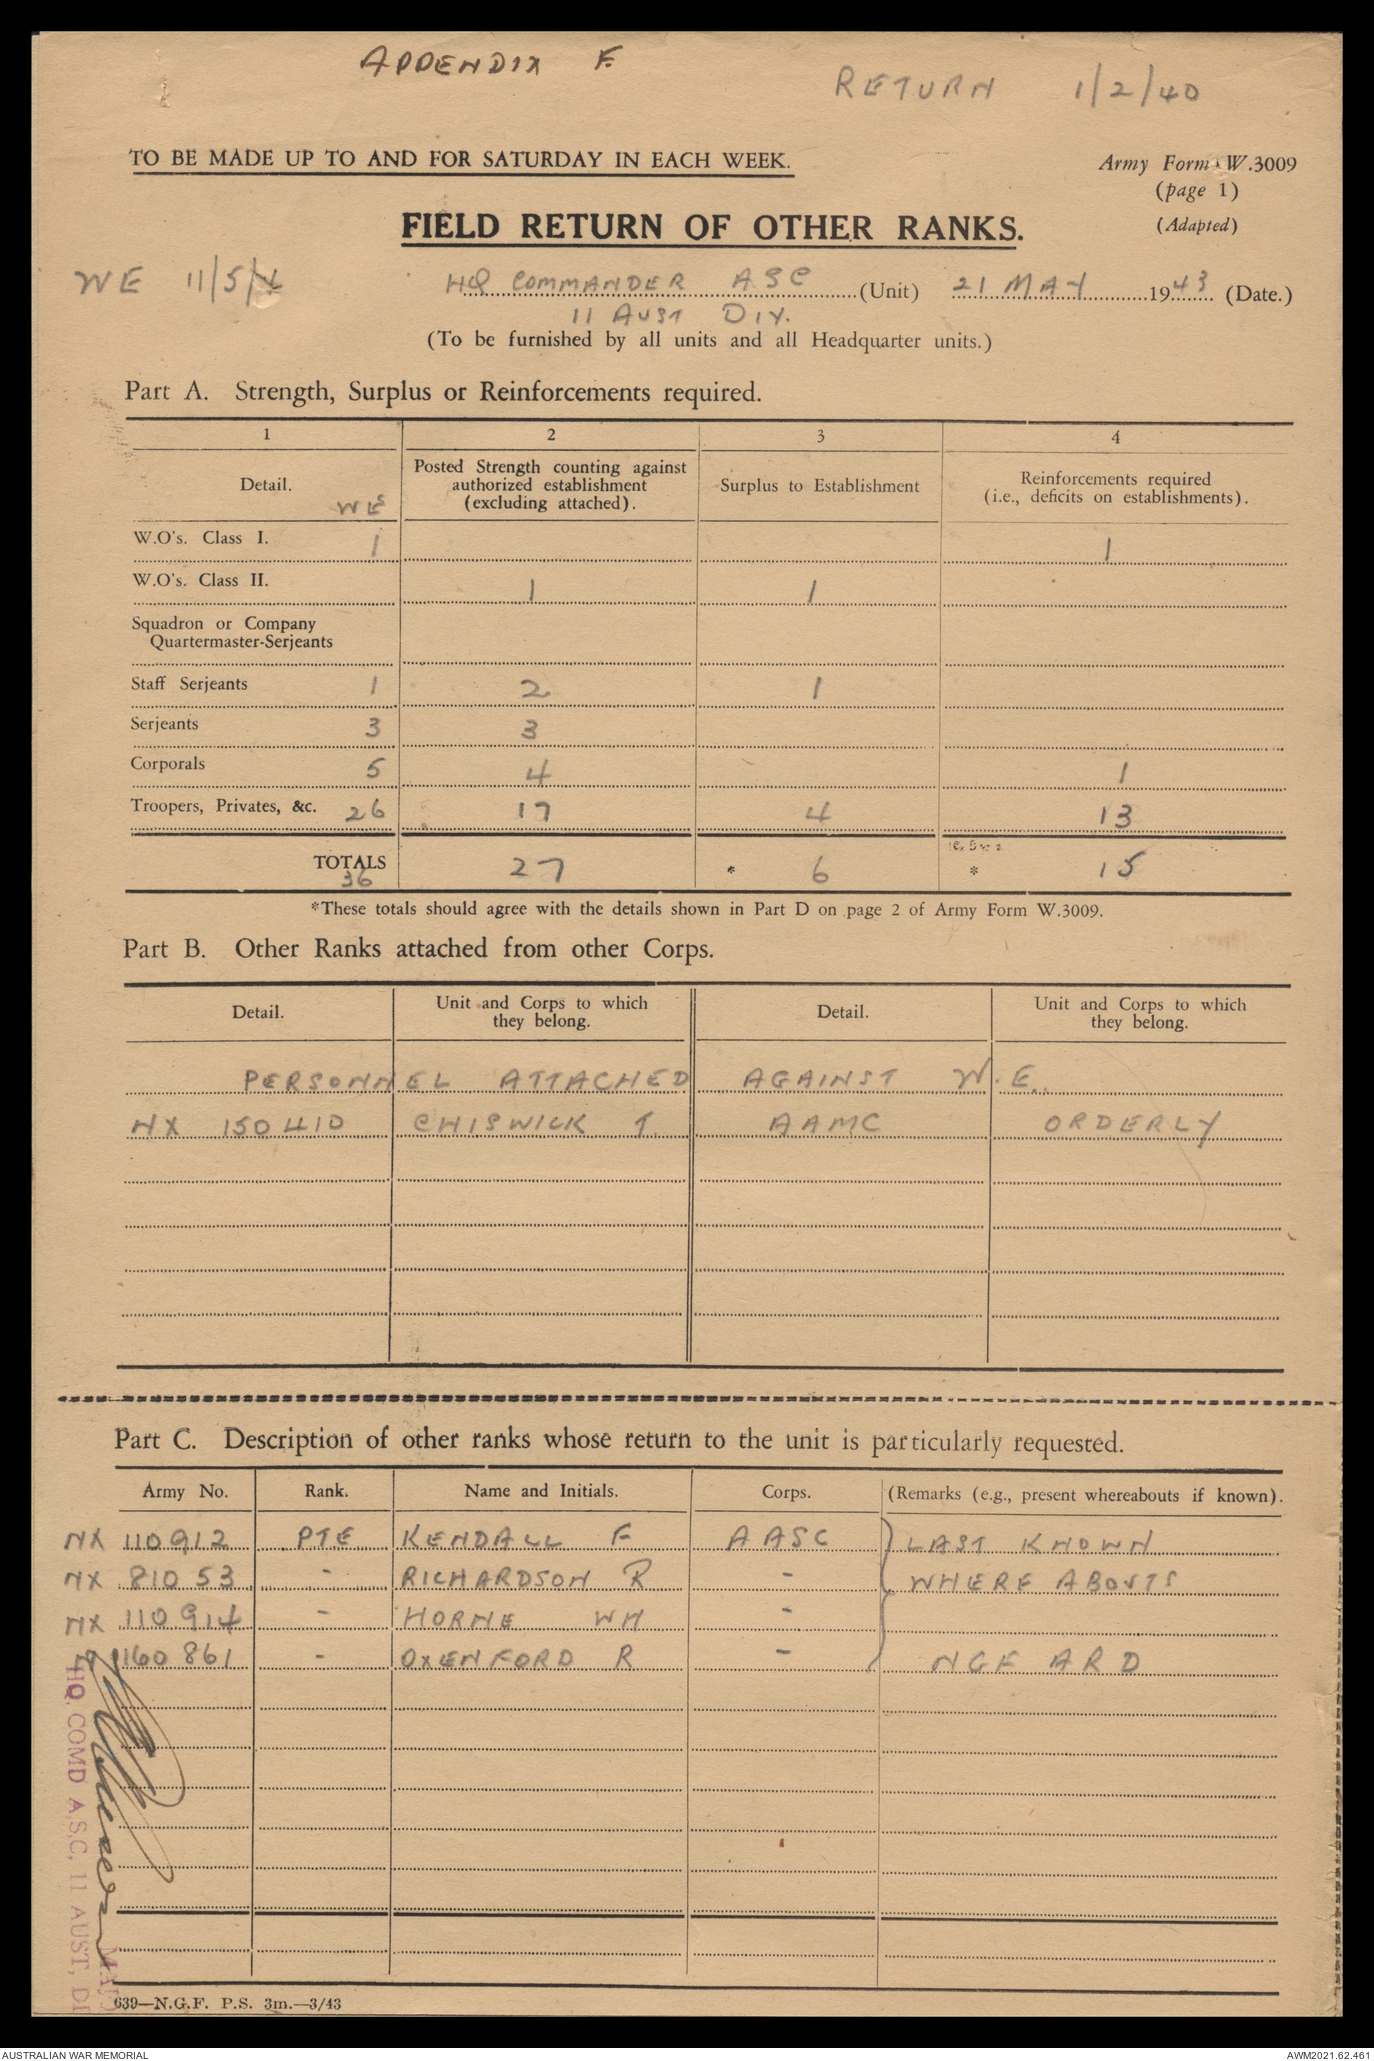 APPENDIX F.
RETURN 1/2/40
TO BE MADE UP TO AND FOR SATURDAY IN EACH WEEK.
Army Form W.3009
(page 1)
(Adapted)
FIELD RETURN OF OTHER RANKS.
WE 11/5/
HQ COMMANDER ASC (Unit) 21 MAY 1943 (Date.)
11 AUST DIV.
(To be furnished by all units and all Headquarter units.)
Part A. Strength, Surplus or Reinforcements required.
1 2 3 4
Detail. WE Posted Strength counting against authorized establishment (excluding attached). Surplus to Establishment Reinforcements required (i.e., deficits on establishments).
W.O's. Class I. 1 1
W.O's. Class II. 1 1
Squadron or Company
Quartermaster-Serjeants
Staff Serjeants 1 2 1
Serjeants 3 3
Corporals 5 4 1
Troopers, Privates, &c. 26 17 4 13
TOTALS 36 27 * 6 * 15
*These totals should agree with the details shown in Part D on page 2 of Army Form W.3009.
Part B. Other Ranks attached from other Corps.
Detail. Unit and Corps to which they belong. Detail. Unit and Corps to which they belong.
PERSONNEL ATTACHED AGAINST W.E.
NX 150410 CHISWICK T. AAMC ORDERLY
Part C. Description of other ranks whose return to the unit is particularly requested.
Army No. Rank. Name and Initials. Corps. (Remarks (e.g., present whereabouts if known).
NX 110912 PTE KENDALL F AASC LAST KNOWN
NX 81053 - RICHARDSON R - WHERE ABOUTS
NX 110914 - HORNE WH -
160861 - OXENFORD R - NGF ARD
HQ. COMD A.S.C, 11 AUST, DI
639—N.G.F. P.S. 3m.—3/43
AUSTRALIAN WAR MEMORIAL
AWM2021.62.461